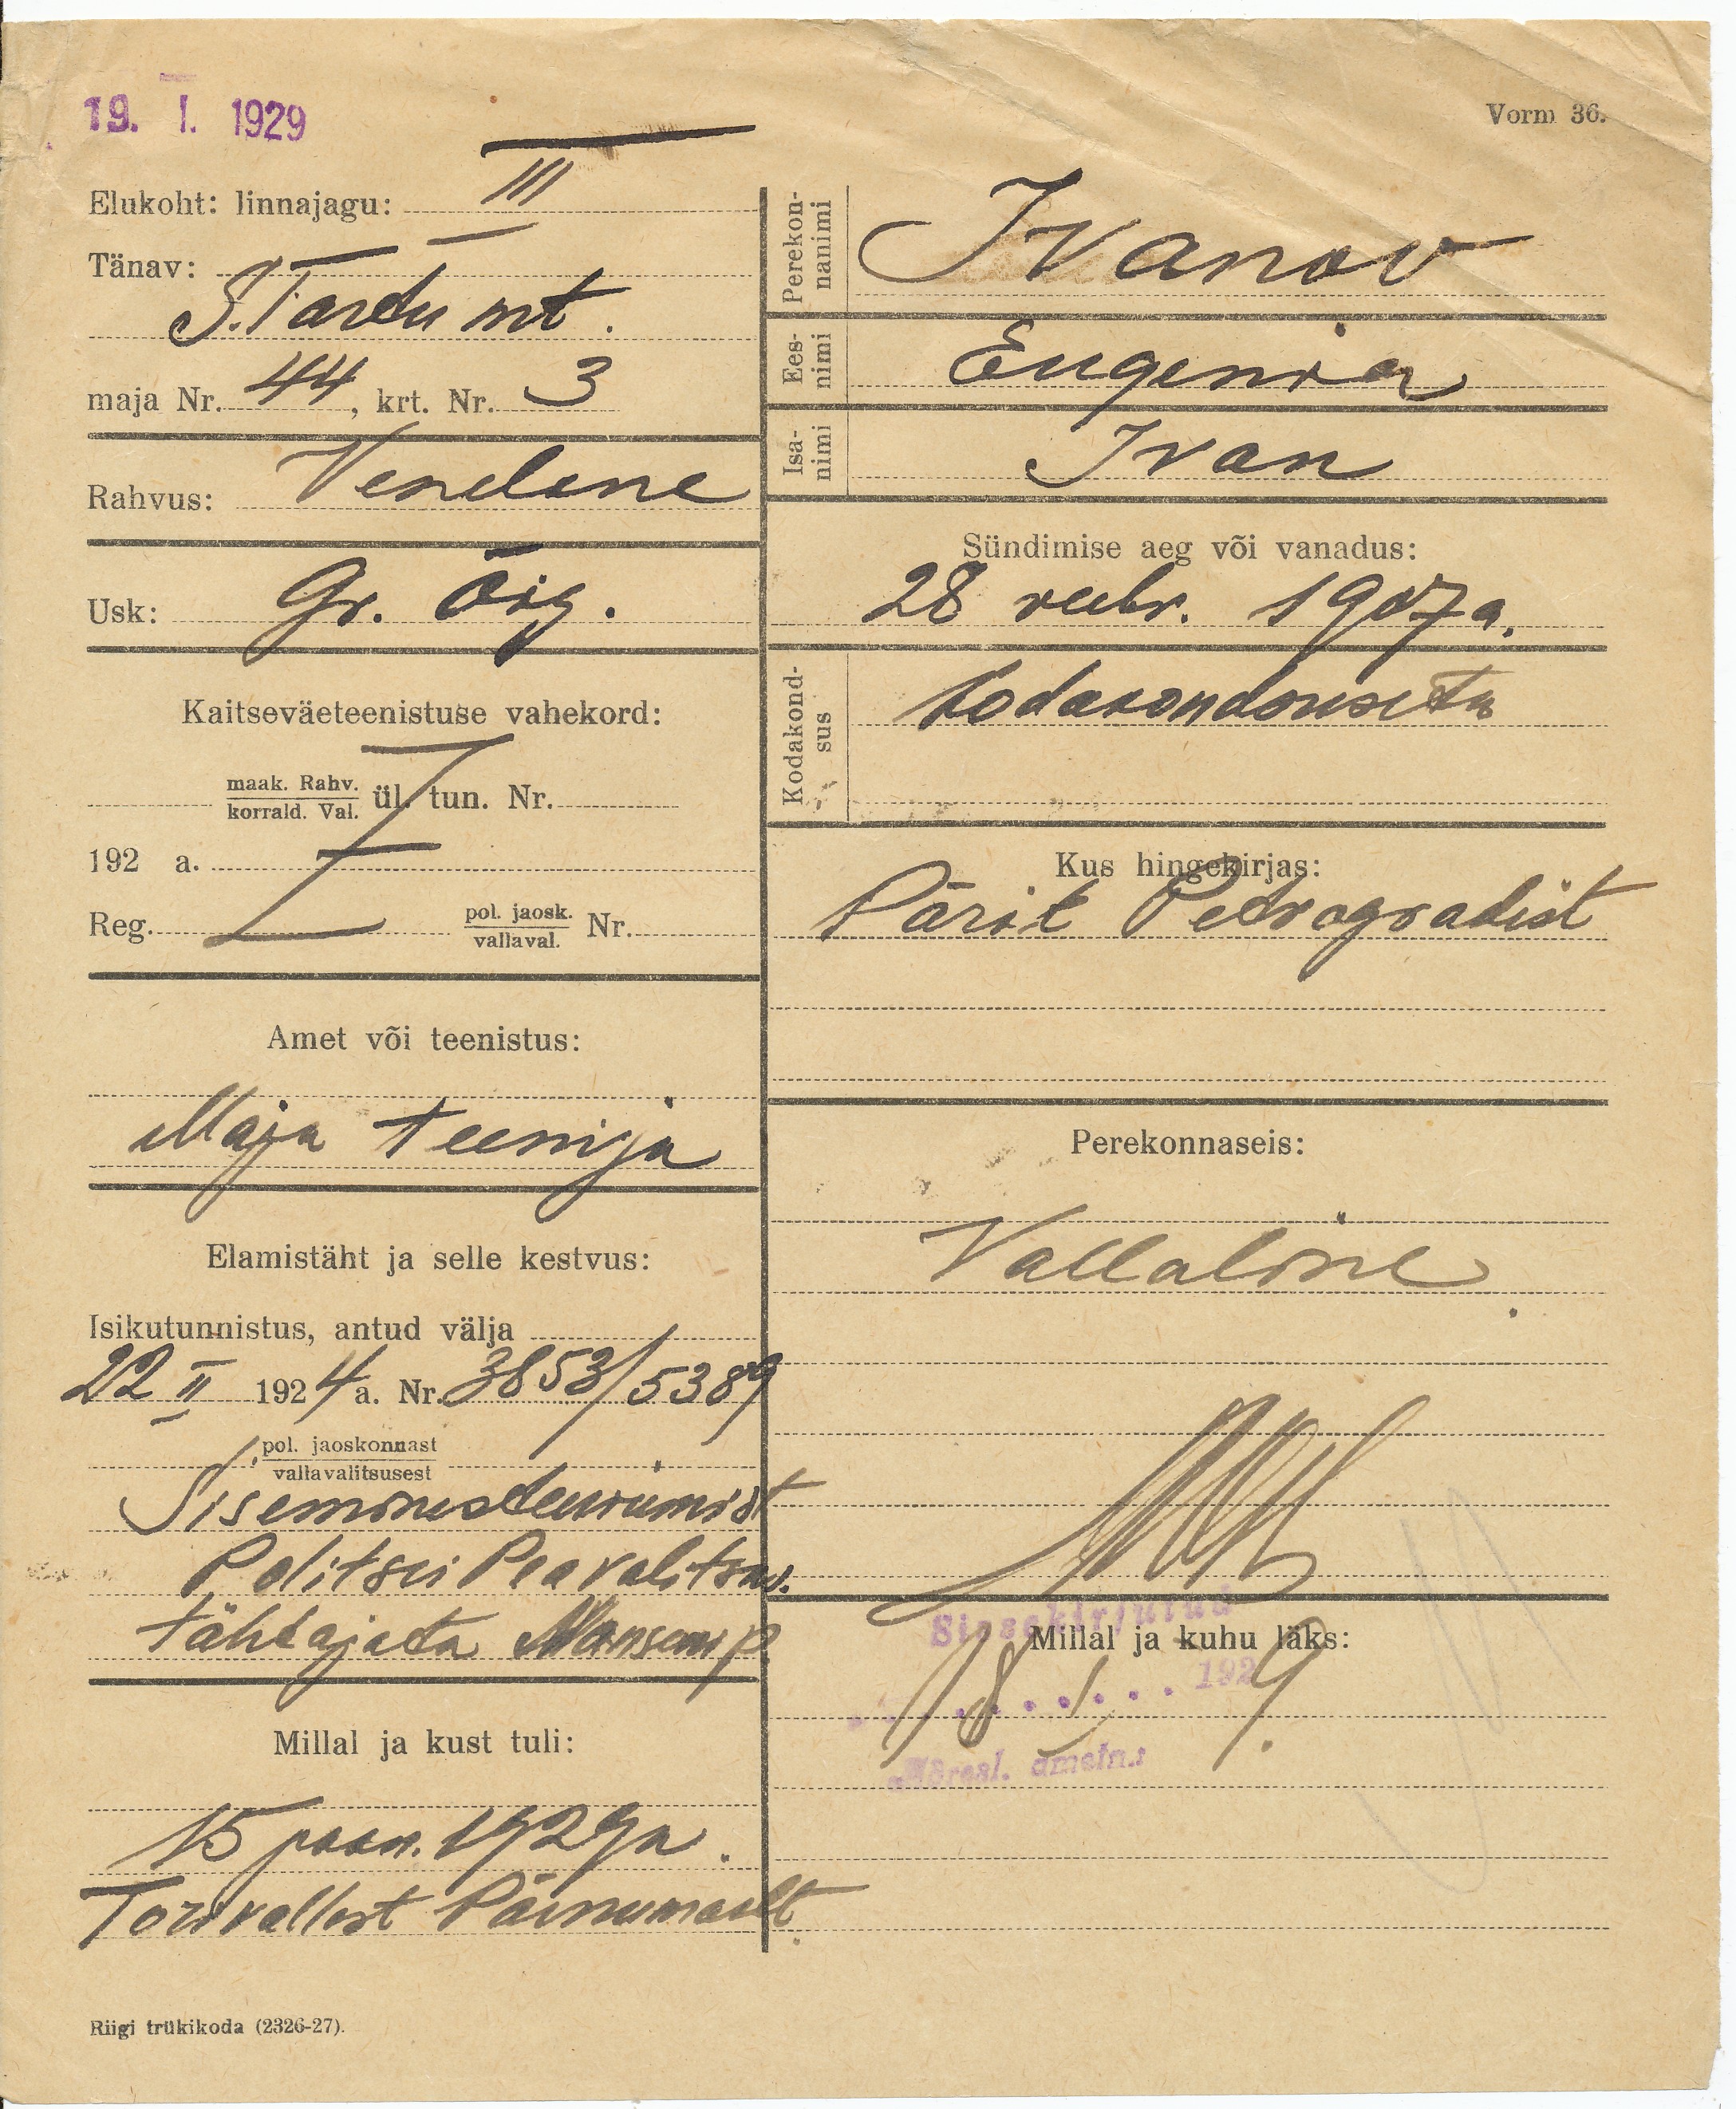 19. I. 1929
Vorm 36.
Elukoht: linnajagu: III
Tänav:
S. Tartu mt.
maja Nr. 44, krt. Nr. 3
Rahvus: Venelene
Usk: Gr. Õig.
Kaitseväeteenistuse vahekord:
maak. Rahv.
korrald. Val. ül. tun. Nr.
192 a.
Reg. pol. jaosk.
vallaval. Nr.
Amet või teenistus:
Maja teenija
Elamistäht ja selle kestvus:
Isikutunnistus, antud välja
22 II 1924 a. Nr. 3853/5389
pol. jaoskonnast
vallavalitsusest
Siseministeeriumist
Politsei Peavalitsus.
tähtajata
Millal ja kust tuli:
15 jaan. 1929 a.
Tori vallast Pärnumaalt.
Riigi trükikoda (2326-27).
Perekon-
nanimi
Ivanov
Ees-
nimi
Eugenia
Isa-
nimi
Ivan
Sündimise aeg või vanadus:
28 veebr. 1907 a.
Kodakond-
sus
kodakondsuseta
Kus hingekirjas:
Pärit Petrogradist
Perekonnaseis:
Vallaline
Sissekirjutud
Millal ja kuhu läks:
18 I 1929
ametn.: